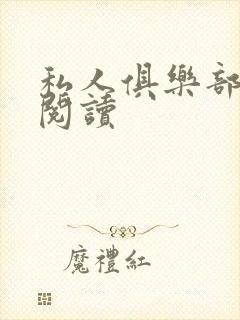 私人俱樂部
閱讀
魔禮紅